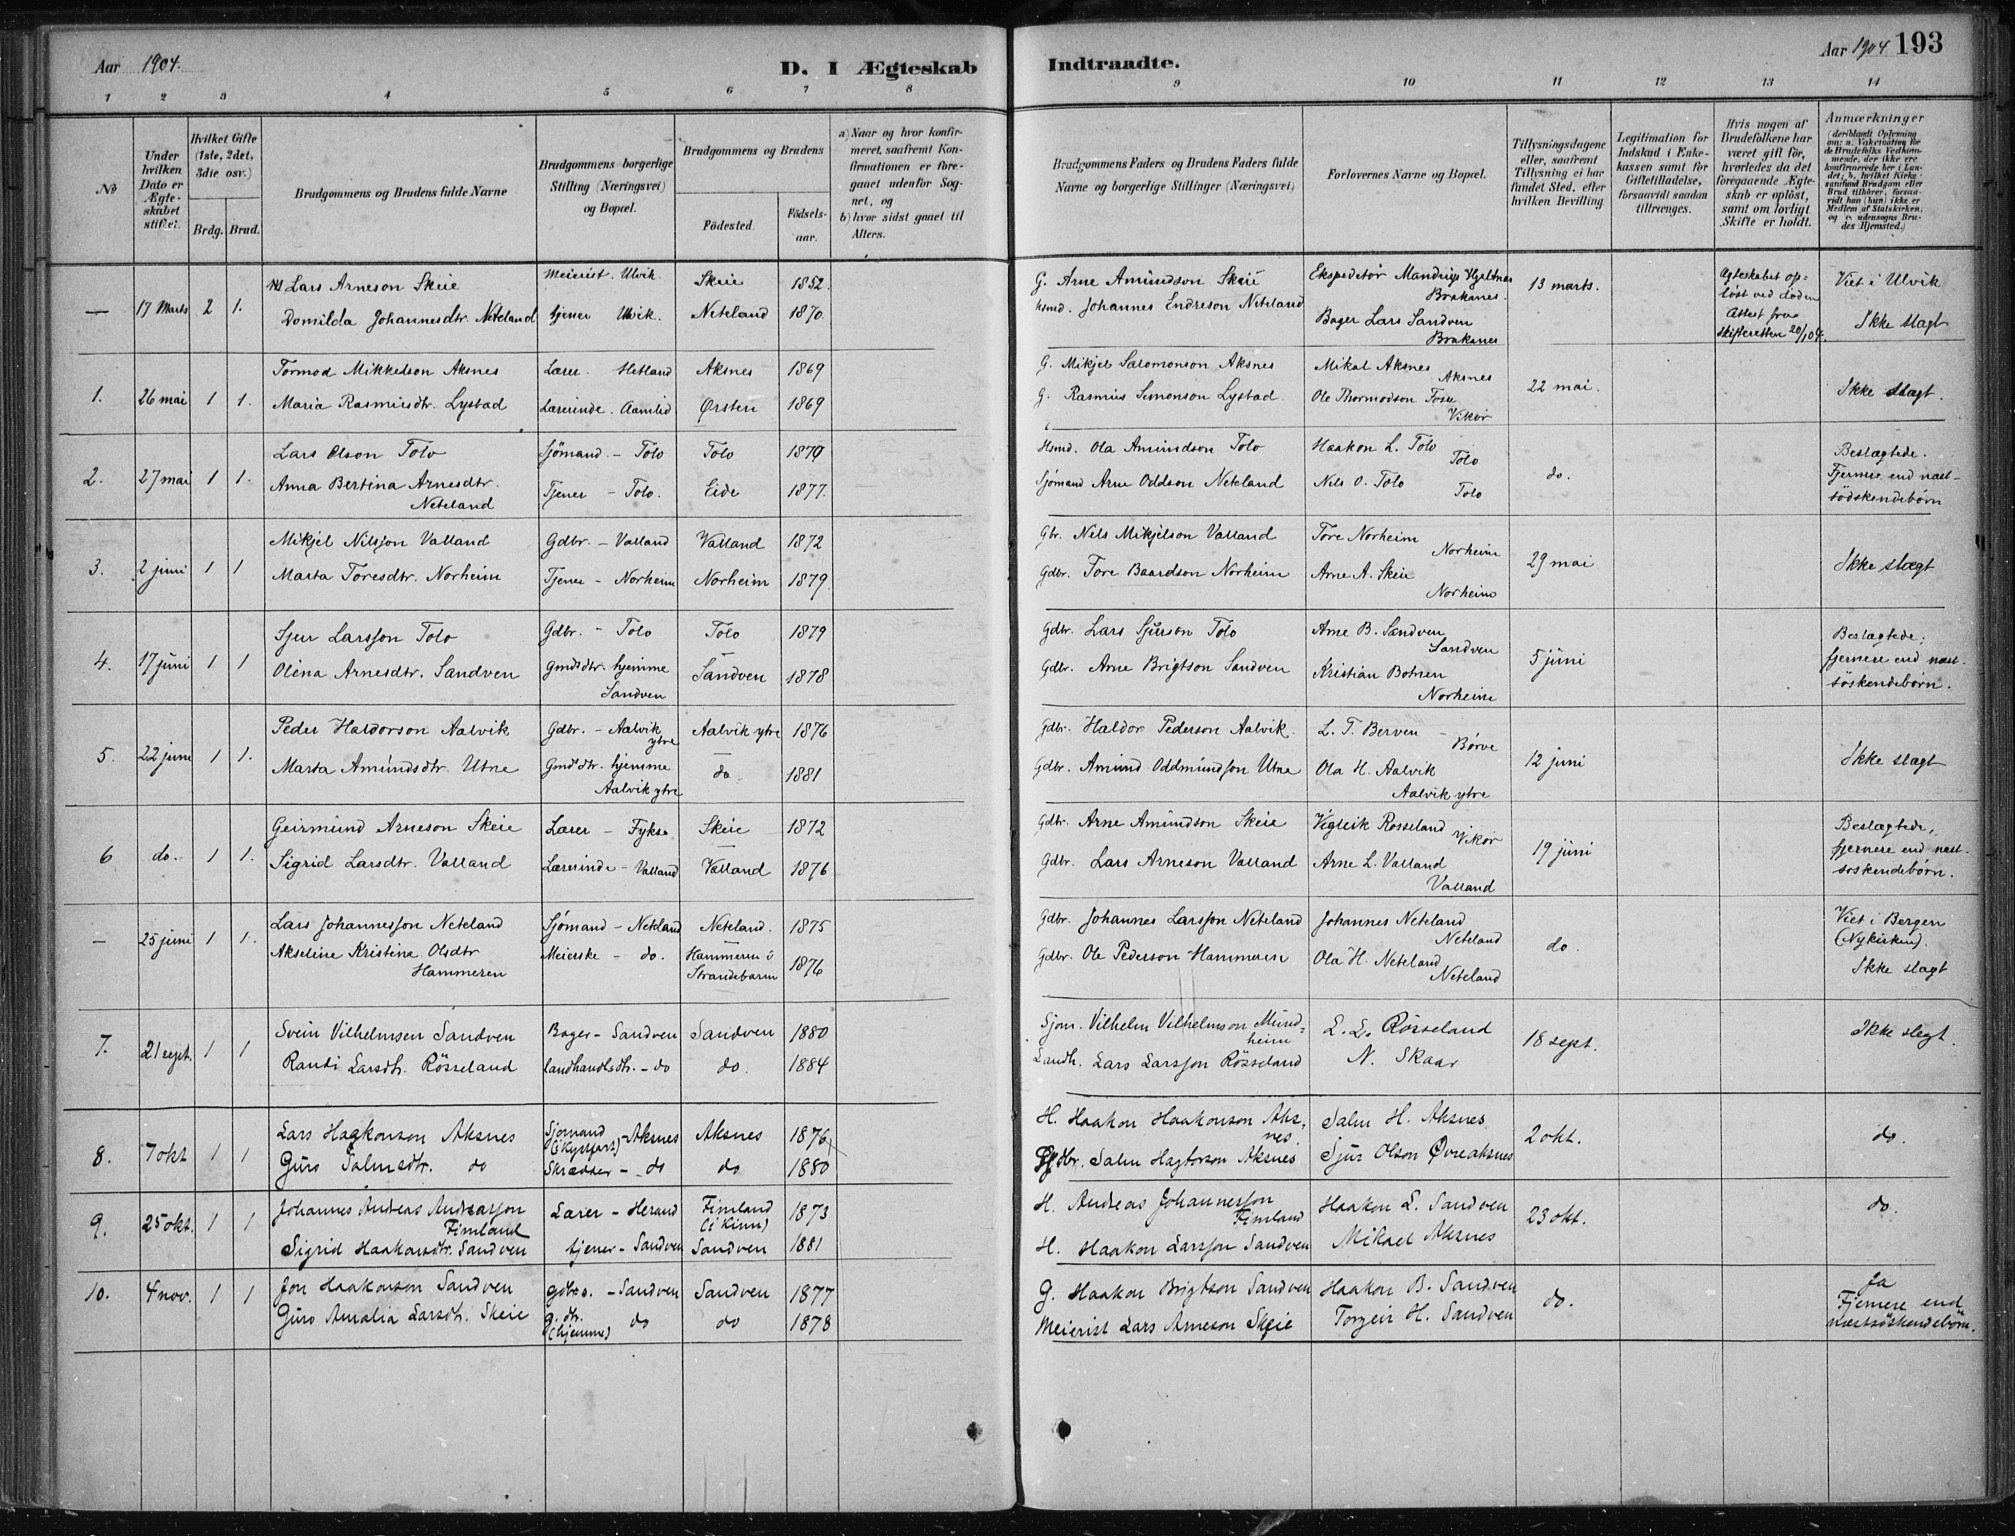 Aar 1904.
D. I Ægteskab
Indtraadte.
Aar 1904 193
1 2 3 4 5 6 7 8 9 10 11 12 13 14
No
Under hvilken Dato er Ægteskabet stiftet.
Hvilket Gifte (1ste, 2det, 3die osv.)
Brdg. Brud.
Brudgommens og Brudens fulde Navne
Brudgommens borgerlige Stilling (Næringsvei) og Bopæl.
Brudgommens og Brudens
Födested.
Födsels-aar.
a) Naar og hvor konfirmeret, saafremt Konfirmationen er foregaaet udenfor Sognet, og
b) hvor sidst gaaet til Alters.
Brudgommens Faders og Brudens Faders fulde Navne og borgerlige Stillinger (Næringsvei)
Forlovernes Navne og Bopæl.
Tillysningsdagene eller, saafremt Tillysning ei har fundet Sted, efter hvilken Bevilling.
Legitimation for Indskud i Enkekassen samt for Giftetilladelse, forsaavidt saadan tiltrænges.
Hvis nogen af Brudefolkene har været gift för, hvorledes da det foregaaende Ægteskab er oplöst, samt om lovligt Skifte er holdt.
Anmærkninger
(deriblandt Oplysning om: a. Vakcination for de Brudefolks Vedkommende, der ikke ere konfirmerede her i Landet; b. hvilket Kirkesamfund Brudgom eller Brud tilhörer, forsaavidt han (hun) ikke er Medlem af Statskirken, og c. udensogns Brudes Hjemsted.)
— 17 Marts 2 1. Lars Arneson Skeie Meierist. Ulvik. Skeie 1852. G. Arne Amundson Skeie Ekspeditør Mandrup Hjeltnes Braknes. 13 marts. Ægteskabet opløst ved Døden Attest fra Skifteretten 20/1 04. Viet i Ulvik
Domilda Johannesdtr. Neteland tjener Ulvik. Neteland 1870. Husmd. Johannes Endreson Neteland Bager Lars Sandven Braknes Ikke slægt
1. 26 mai 1 1. Tormod Mikkelson Aksnes Lærer. Hetland Aksnes 1869 G. Mikjel Salomonson Aksnes Mikal Aksnes Aksnes 22 mai. Ikke slægt.
Maria Rasmusdtr. Lystad Lærerinde. Aamlid Ørsten 1869 G. Rasmus Simonson Lystad. Ole Thormodson Vikør
2. 27 mai 1 1. Lars Olson Tolo Sjømand – Tolo Tolo 1879 Husmd. Ola Amundson Tolo Haakon L. Tolo Tolo do. Beslægtede. Fjernere end næst-södskendebørn
Anna Bertina Arnesdtr. Neteland Tjener – Tolo. Eide 1877. Sjømand Arne Oddson Neteland Nils O. Tolo Tolo
3. 2 juni 1 1 Mikjel Nilsson Valland Gdbr. – Valland Valland 1872 Gbr. Nils Mikjelson Valland Tore Norheim Norheim 29 mai Ikke slægt
Marta Toresdtr. Norheim Tjener – Norheim Norheim 1879. Gdbr. Tore Baardson Norheim Arne A. Skeie Norheim
4. 17 juni 1 1 Sjur Larsson Tolo Gdbr. – Tolo Tolo 1879 Gdbr. Lars Sjurson Tolo Arne B. Sandven Sandven 5 juni Beslægtede; fjernere end næst-söskendebørn.
Olina Arnesdtr. Sandven Gmdsdtr. hjemme Sandven Sandven 1878 Gdbr. Arne Brigtson Sandven Kristian Botnen Norheim
5. 22 juni 1 1. Peder Haldorson Aalvik Gdbr. – Aalvik ytre Aalvik ytre 1876 Gdbr. Haldor Pederson Aalvik. L. T. Berven – Børve 12 juni Ikke slægt
Marta Amundsdtr. Utne Gmdsdtr. hjemme Aalvik ytre do. 1881 Gdbr. Amund Oddmundson Utne Ola H. Aalvik Aalvik ytre
6 do. 1 1. Geirmund Arneson Skeie Lærer – Fykse Skeie 1872 Gdbr. Arne Amundson Skeie Vigleik Rosseland Vikør 19 juni Beslægtede, fjernere end næst-söskendebørn.
Sigrid Larsdtr. Valland Lærerinde – Valland Valland 1876 Gdbr. Lars Arneson Valland Arne L. Valland Valland
– 25 juni 1 1. Lars Johannesson Neteland Sjømand – Neteland Neteland. 1875 Gdbr. Johannes Larsson Neteland Johannes Neteland Neteland do. Viet i Bergen (Nykirken).
Akseline Kristina Olsdtr Hammeren Meierske – do. Hammeren i Strandebarm 1876 Gdbr. Ole Pederson Hammeren Ola H. Neteland Neteland Ikke slægt
7. 21 sept. 1 1 Svein Vilhelmsen Sandven Bager – Sandven Sandven 1880 Sjøm. Vilhelm Vilhelmson Mundheim L. L. Rösseland 18 sept. Ikke slegt.
Randi Larsdtr. Rösseland landhandlsdtr. – do do. 1884 Landh. Lars Larsson Rösseland N. Skaar
8. 7 okt 1 1 Lars Haakonson Aksnes Sjömand – Aksnes Aksnes 1876 H. Haakon Haakonson Aksnes Salm H. Aksnes 2 okt. do.
Guro Salmsdtr. do Skrædder – do do 1880 Gdbr. Salm Hagtorson Aksnes Sjur Olson Øvreaksnes
9. 25 okt. 1 1 Johannes Andreas Andreasson Fimland Lærer – Herand Fimland (i Kinn) 1873 H. Andreas Johannesson Fimland Haakon L. Sandven 23 okt. do.
Sigrid Haakonsdtr. Sandven tjener – Sandven Sandven 1881 H. Haakon Larsson Sandven Mikael Aksnes
10. 4 nov. 1 1 Jon Haakonson Sandven gdbr. – Sandven Sandven 1877 G. Haakon Brigtson Sandven Haakon B. Sandven do. Ja Fjernere end næstsöskendebörn.
Guro Amalia Larsdtr. Skeie g. dtr. (hjemme) do do 1878 Meierist Lars Arneson Skeie Torgeir H. Sandven